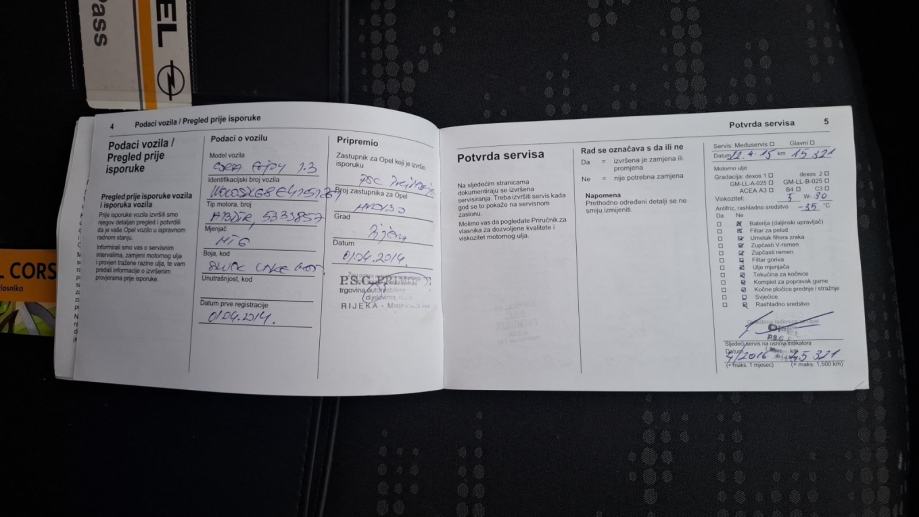 Pass
OPEL
4 Podaci vozila / Pregled prije isporuke
Podaci vozila /
Pregled prije
isporuke
Pregled prije isporuke vozila
i isporuka vozila
Prije isporuke vozila izvršili smo
njegov detaljan pregled i potvrdili
da je vaše Opel vozilo u ispravnom
radnom stanju.
Informirali smo vas o servisnim
intervalima, zamjeni motornog ulja
i provjeri tražene razine ulja, te vam
predali informacije o izvršenim
provjerama prije isporuke.
Podaci o vozilu
Model vozila
1.3
Identifikacijski broj vozila
Tip motora, broj
Mjenjač
Boja, kod
Unutrašnjost, kod
Datum prve registracije
01.04.2014.
Pripremio
Zastupnik za Opel koji je izvršio
isporuku
PSC
Broj zastupnika za Opel
Grad
Rijeka
Datum
01.04.2014.
P.S.C. PRIMOR
trgovina automobilima
RIJEKA -
L CORS
Potvrda servisa 5
Potvrda servisa
Na sljedećim stranicama
dokumentiraju se izvršena
servisiranja. Treba izvršiti servis kada
god se to pokaže na servisnom
zaslonu.
Molimo vas da pogledate Priručnik za
vlasnika za dozvoljene kvalitete i
viskozitet motornog ulja.
Rad se označava s da ili ne
Da = izvršena je zamjena ili
promjena
Ne = nije potrebna zamjena
Napomena
Prethodno određeni detalji se ne
smiju izmijeniti.
Servis: Međuservis Glavni
Datum 4 15 km 15 321
Motorno ulje
Gradacija: dexos 1 dexos 2
GM-LL-A-025 GM-LL-B-025
ACEA A3 B4 C3
Viskozitet: 5 W- 30
Antifriz, rashladno sredstvo -35 °C
Da Ne
Baterija (daljinski upravljač)
Filtar za pelud
Umetak filtra zraka
Zupčasti V-remen
Zupčasti remen
Filtar goriva
Ulje mjenjača
Tekućina za kočnice
Komplet za popravak gume
Kočne pločice prednje i stražnje
Svjećice
Rashladno sredstvo
Sljedeći servis na osnovu indikatora
Datum km
4/2016 45 321
(+ maks. 1 mjesec) (+ maks. 1,500 km)